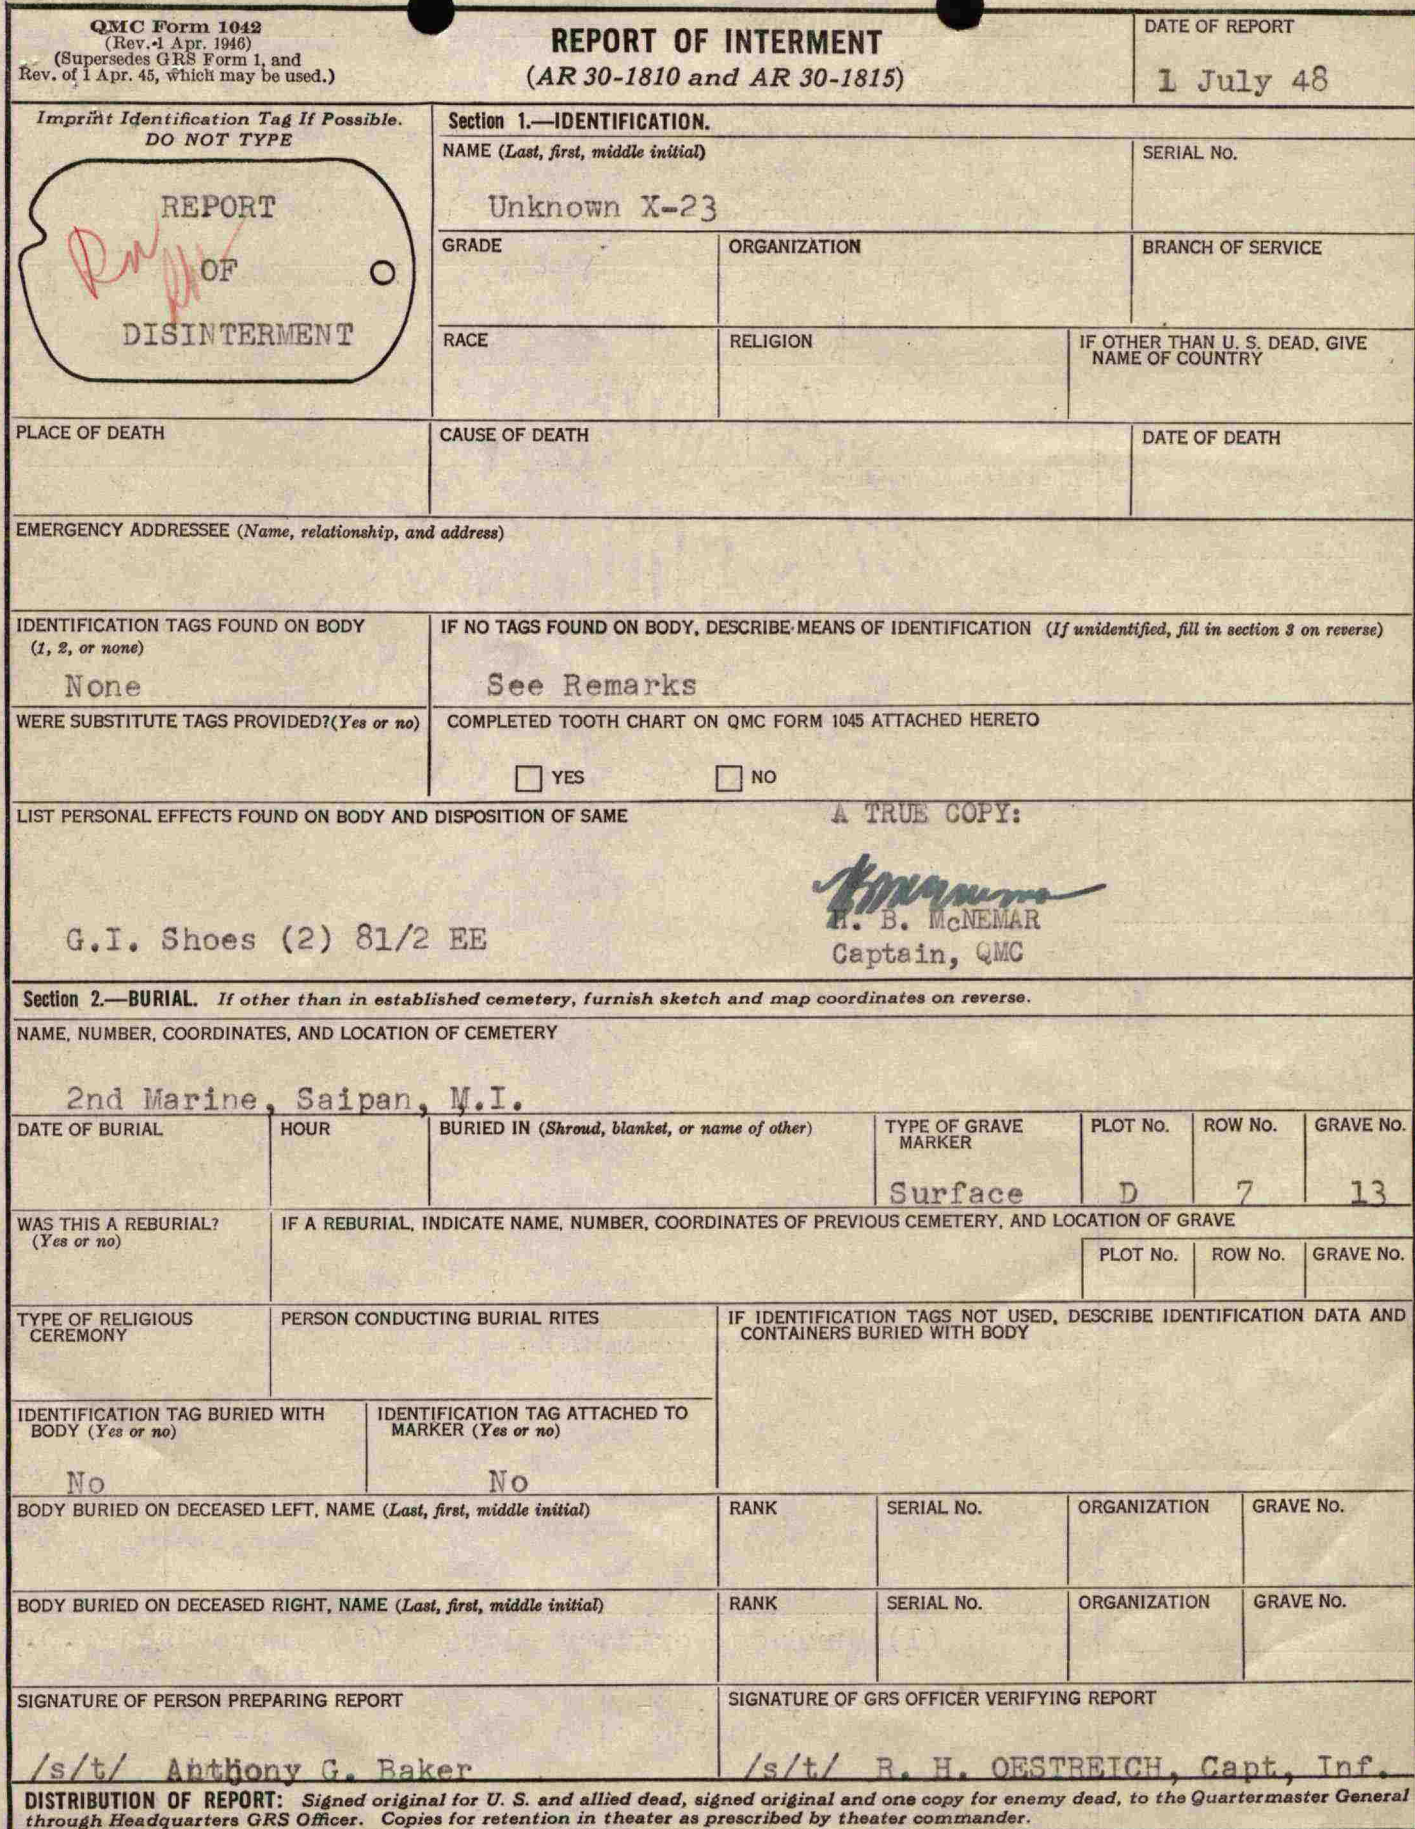 QMC Form 1042
(Rev. 1 Apr. 1946)
(Supersedes GRS Form 1, and
Rev. of 1 Apr. 45, which may be used.)
REPORT OF INTERMENT
(AR 30-1810 and AR 30-1815)
DATE OF REPORT
1 July 48
Imprint Identification Tag If Possible.
DO NOT TYPE
REPORT
OF
DISINTERMENT
Section 1.—IDENTIFICATION.
NAME (Last, first, middle initial)
Unknown X-23
SERIAL No.
GRADE
ORGANIZATION
BRANCH OF SERVICE
RACE
RELIGION
IF OTHER THAN U. S. DEAD, GIVE
NAME OF COUNTRY
PLACE OF DEATH
CAUSE OF DEATH
DATE OF DEATH
EMERGENCY ADDRESSEE (Name, relationship, and address)
IDENTIFICATION TAGS FOUND ON BODY
(1, 2, or none)
None
IF NO TAGS FOUND ON BODY, DESCRIBE MEANS OF IDENTIFICATION (If unidentified, fill in section 3 on reverse)
See Remarks
WERE SUBSTITUTE TAGS PROVIDED?(Yes or no)
COMPLETED TOOTH CHART ON QMC FORM 1045 ATTACHED HERETO
YES
NO
LIST PERSONAL EFFECTS FOUND ON BODY AND DISPOSITION OF SAME
A TRUE COPY:
H. B. McNEMAR
G.I. Shoes (2) 81/2 EE
Captain, QMC
Section 2.—BURIAL. If other than in established cemetery, furnish sketch and map coordinates on reverse.
NAME, NUMBER, COORDINATES, AND LOCATION OF CEMETERY
2nd Marine, Saipan, M.I.
DATE OF BURIAL
HOUR
BURIED IN (Shroud, blanket, or name of other)
TYPE OF GRAVE
MARKER
Surface
PLOT No.
D
ROW No.
7
GRAVE No.
13
WAS THIS A REBURIAL?
(Yes or no)
IF A REBURIAL, INDICATE NAME, NUMBER, COORDINATES OF PREVIOUS CEMETERY, AND LOCATION OF GRAVE
PLOT No.
ROW No.
GRAVE No.
TYPE OF RELIGIOUS
CEREMONY
PERSON CONDUCTING BURIAL RITES
IF IDENTIFICATION TAGS NOT USED, DESCRIBE IDENTIFICATION DATA AND
CONTAINERS BURIED WITH BODY
IDENTIFICATION TAG BURIED WITH
BODY (Yes or no)
No
IDENTIFICATION TAG ATTACHED TO
MARKER (Yes or no)
No
BODY BURIED ON DECEASED LEFT, NAME (Last, first, middle initial)
RANK
SERIAL No.
ORGANIZATION
GRAVE No.
BODY BURIED ON DECEASED RIGHT, NAME (Last, first, middle initial)
RANK
SERIAL No.
ORGANIZATION
GRAVE No.
SIGNATURE OF PERSON PREPARING REPORT
/s/t/ Anthony G. Baker
SIGNATURE OF GRS OFFICER VERIFYING REPORT
/s/t/ R. H. OESTREICH, Capt, Inf.
DISTRIBUTION OF REPORT: Signed original for U. S. and allied dead, signed original and one copy for enemy dead, to the Quartermaster General
through Headquarters GRS Officer. Copies for retention in theater as prescribed by theater commander.